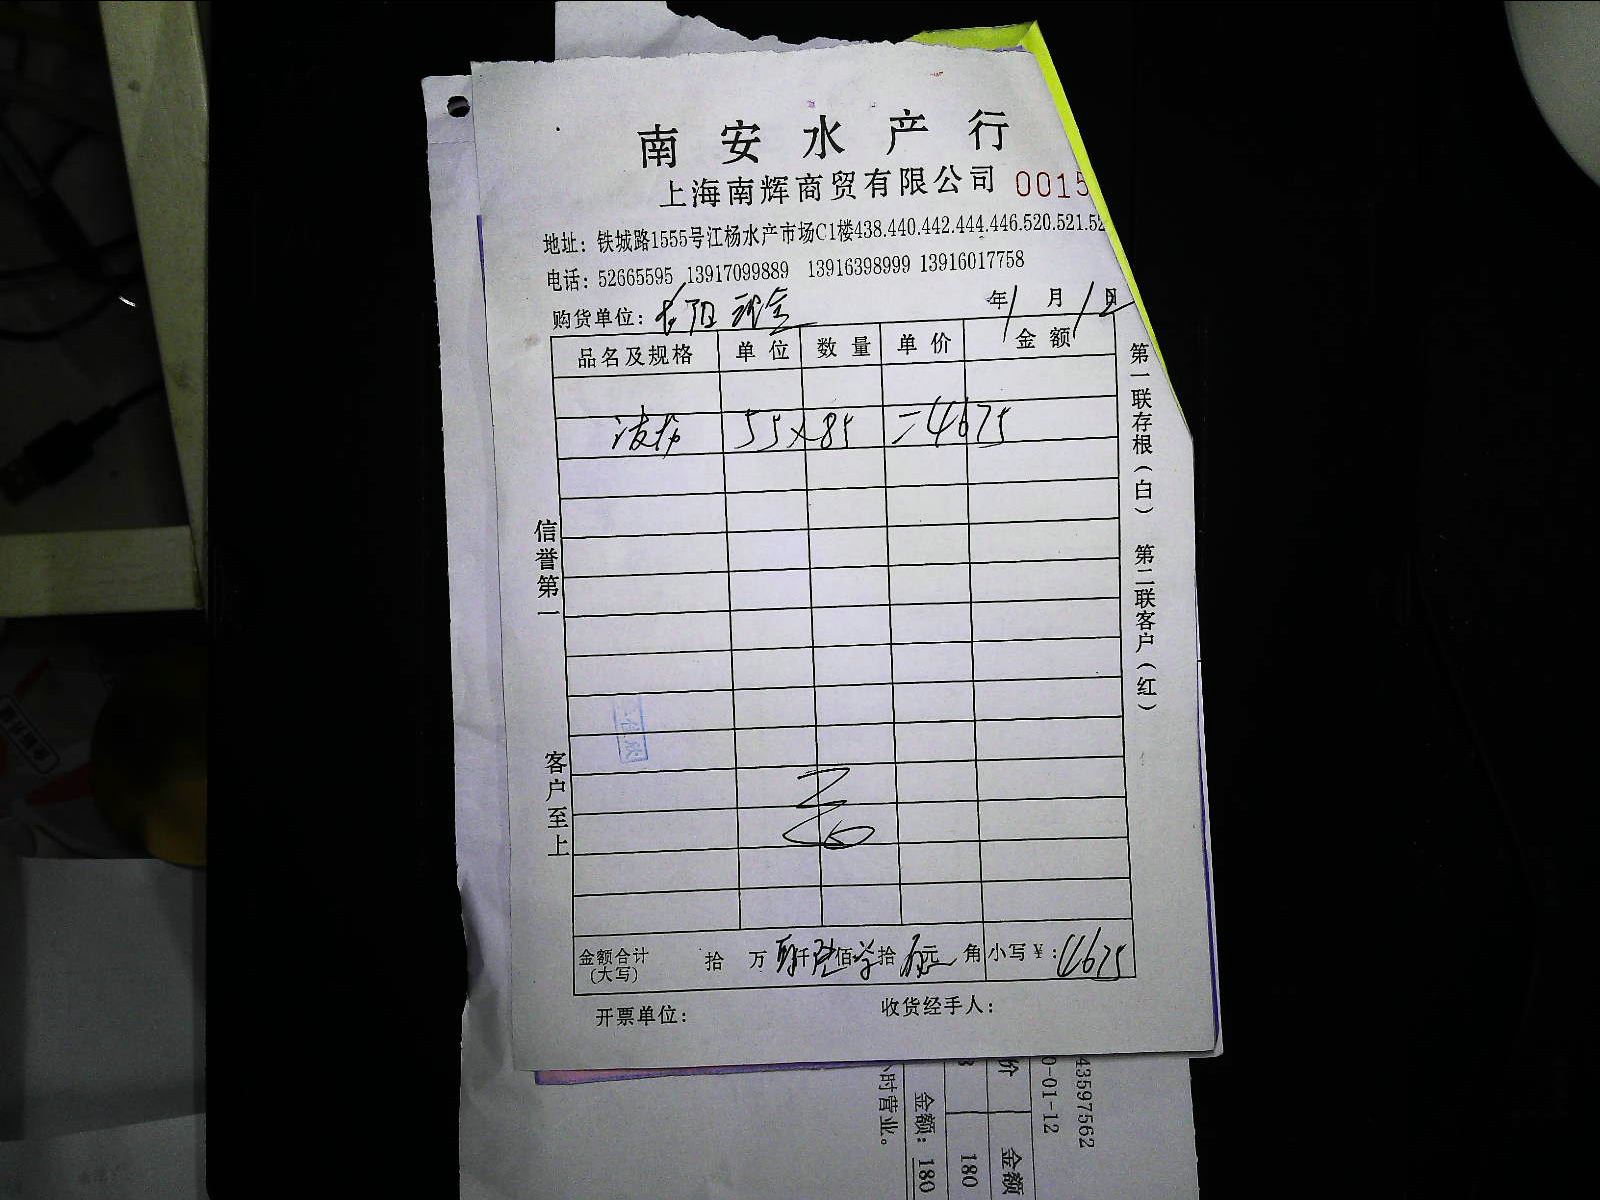 南安水产行
上海南辉商贸有限公司 0015
地址：铁城路1555号江杨水产市场C1楼438.440.442.444.446.520.521.52
电话：52665595 13917099889 13916398999 13916017758
购货单位： 年 1 月 12 日
品名及规格 单位 数量 单价 金额
55×85 =4675
信誉第一
客户至上
第一联存根（白） 第二联客户（红）
金额合计（大写） 拾 万 肆仟陆佰柒拾伍元 角 小写￥：4675
开票单位： 收货经手人：
43597562
0-01-12
价 金额
180
金额：180
小时营业。